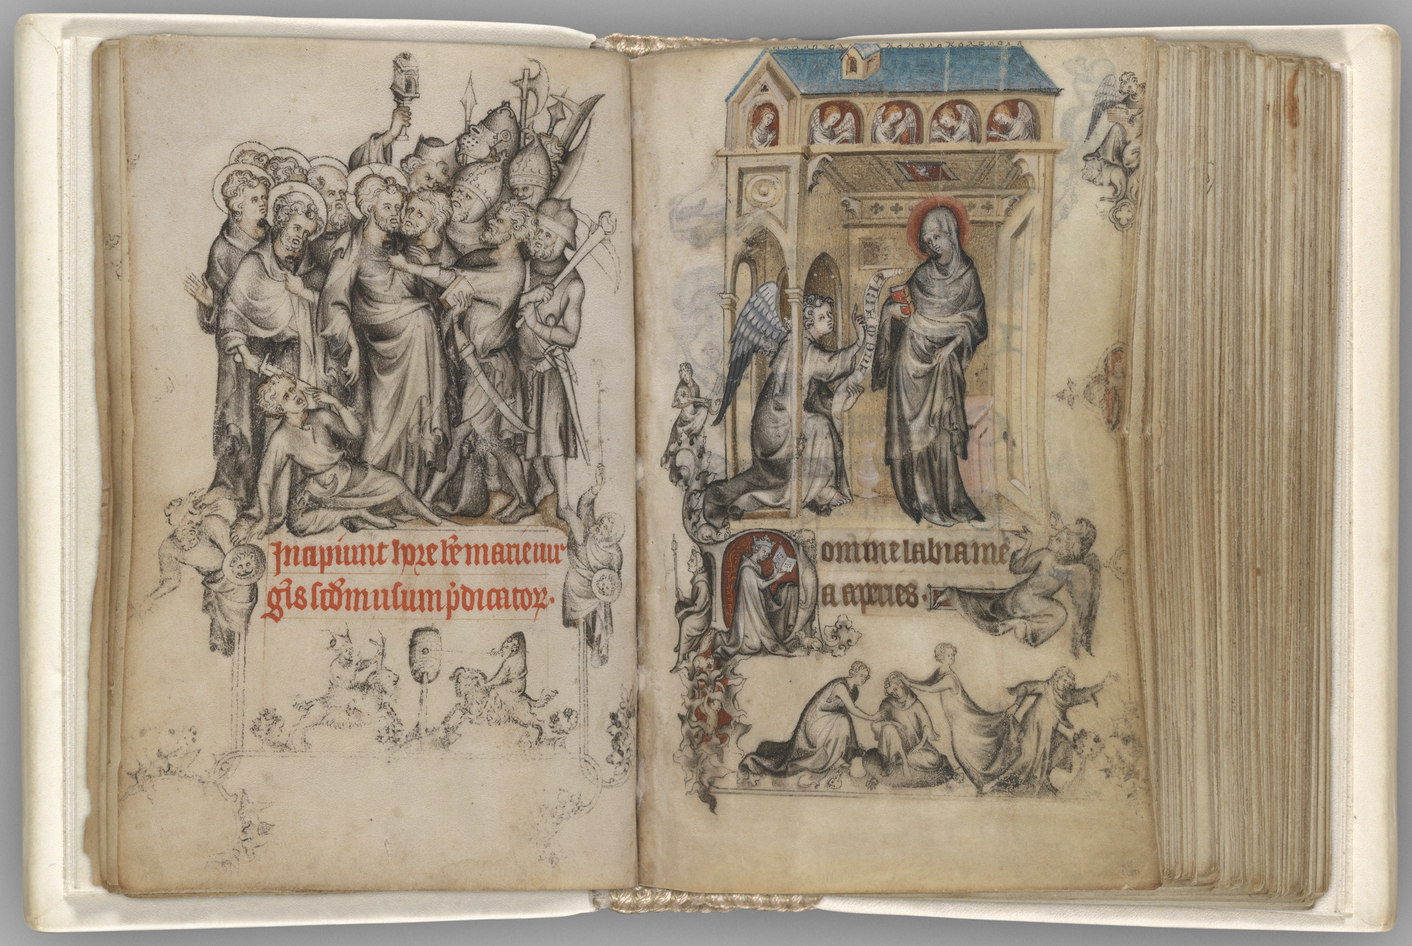 Incipiunt hore bẽ marie uir
gĩs scdm usum p̃dicatoꝝ.
AVE GRACIA
Domine labia me
a aperies.